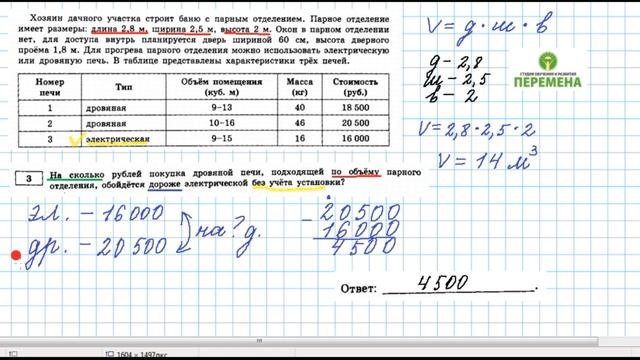 Хозяин дачного участка строит баню с парным отделением. Парное отделение
имеет размеры: длина 2,8 м, ширина 2,5 м, высота 2 м. Окон в парном отделении
нет, для доступа внутрь планируется дверь шириной 60 см, высота дверного
проёма 1,8 м. Для прогрева парного отделения можно использовать электрическую
или дровяную печь. В таблице представлены характеристики трёх печей.
Номер печи Тип Объём помещения (куб. м) Масса (кг) Стоимость (руб.)
1 дровяная 9–13 40 18 500
2 дровяная 10–16 46 20 500
3 электрическая 9–15 16 16 000
3 На сколько рублей покупка дровяной печи, подходящей по объёму парного
отделения, обойдётся дороже электрической без учёта установки?
V = д · ш · в
д – 2,8
ш – 2,5
в – 2
СТУДИЯ ОБУЧЕНИЯ И РАЗВИТИЯ
ПЕРЕМЕНА
V = 2,8 · 2,5 · 2
V = 14 м³
эл. – 16000
др. – 20500
на ? д.
– 20500
16000
4500
Ответ: 4500.
1604 × 1497пкс